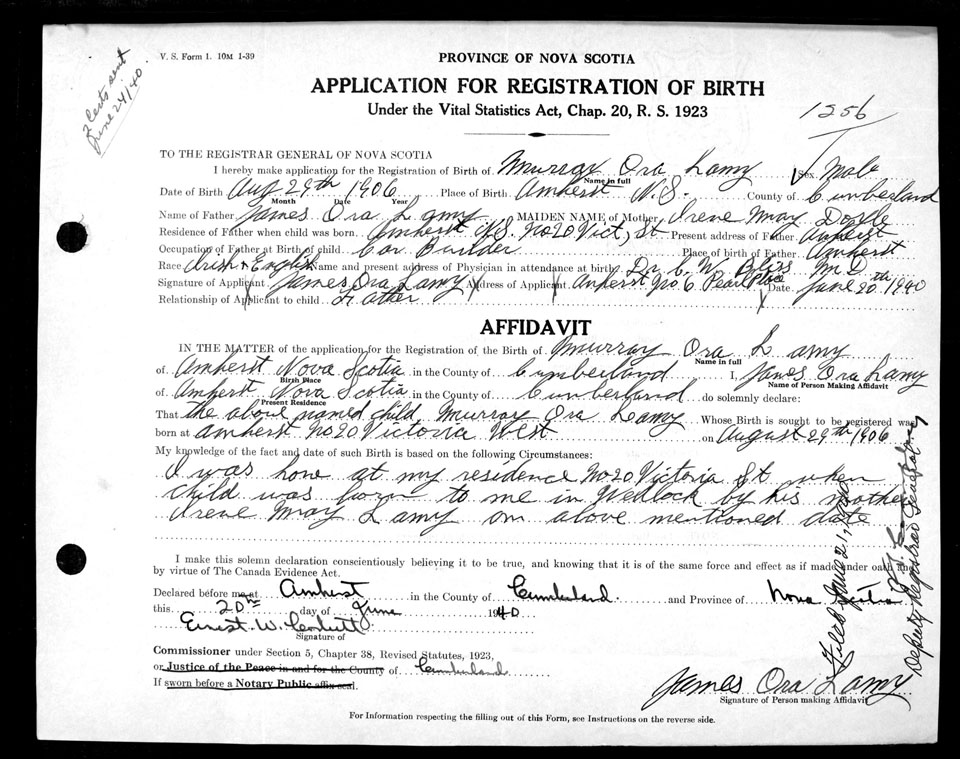 2 Certs sent
June 24/40
V. S. Form 1. 10M 1-39
PROVINCE OF NOVA SCOTIA
APPLICATION FOR REGISTRATION OF BIRTH
Under the Vital Statistics Act, Chap. 20, R. S. 1923
1256
TO THE REGISTRAR GENERAL OF NOVA SCOTIA
I hereby make application for the Registration of Birth of Murray Ora Lamy Sex Male
Name in full
Date of Birth Aug 29th 1906 Place of Birth Amherst N.S. County of Cumberland
Month Date Year
Name of Father James Ora Lamy MAIDEN NAME of Mother Irene May Doyle
Residence of Father when child was born Amherst N.S. No 20 Vict, St Present address of Father Amherst
Occupation of Father at Birth of child Car Builder Place of birth of Father Amherst
Race Irish & English Name and present address of Physician in attendance at birth Dr. C. W. Bliss M D
Signature of Applicant James Ora Lamy Address of Applicant Amherst No. 6 Pearl Place Date June 20th 1940
Relationship of Applicant to child Father
AFFIDAVIT
IN THE MATTER of the application for the Registration of the Birth of Murray Ora Lamy
Name in full
of Amherst Nova Scotia in the County of Cumberland I, James Ora Lamy
Birth Place Name of Person Making Affidavit
of Amherst Nova Scotia in the County of Cumberland do solemnly declare:
Present Residence
That the above named child Murray Ora Lamy Whose Birth is sought to be registered was
born at Amherst No 20 Victoria West on August 29th 1906
My knowledge of the fact and date of such Birth is based on the following Circumstances:
I was home at my residence No 20 Victoria St when
child was born to me in Wedlock by his mother
Irene May Lamy on above mentioned date
I make this solemn declaration conscientiously believing it to be true, and knowing that it is of the same force and effect as if made under oath and
by virtue of The Canada Evidence Act.
Declared before me at Amherst in the County of Cumberland and Province of Nova Scotia
this 20th day of June 1940
Ernest W.
Signature of
Commissioner under Section 5, Chapter 38, Revised Statutes, 1923,
or Justice of the Peace in and for the County of Cumberland
If sworn before a Notary Public affix seal.
James Ora Lamy
Signature of Person making Affidavit
For Information respecting the filling out of this Form, see Instructions on the reverse side.
Filed June 21, 1940
Deputy Registrar General